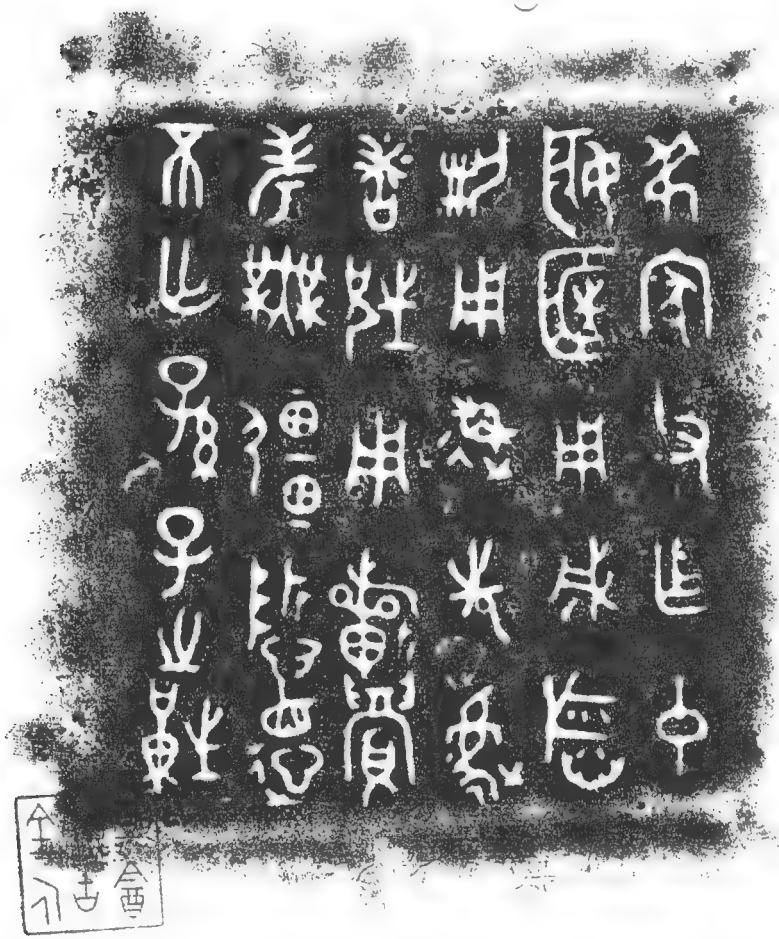 弔家父乍中
姬匡用成稻
梁用速先後
者兄用旂眉
考無疆哲德
不亡孫子之𨊠